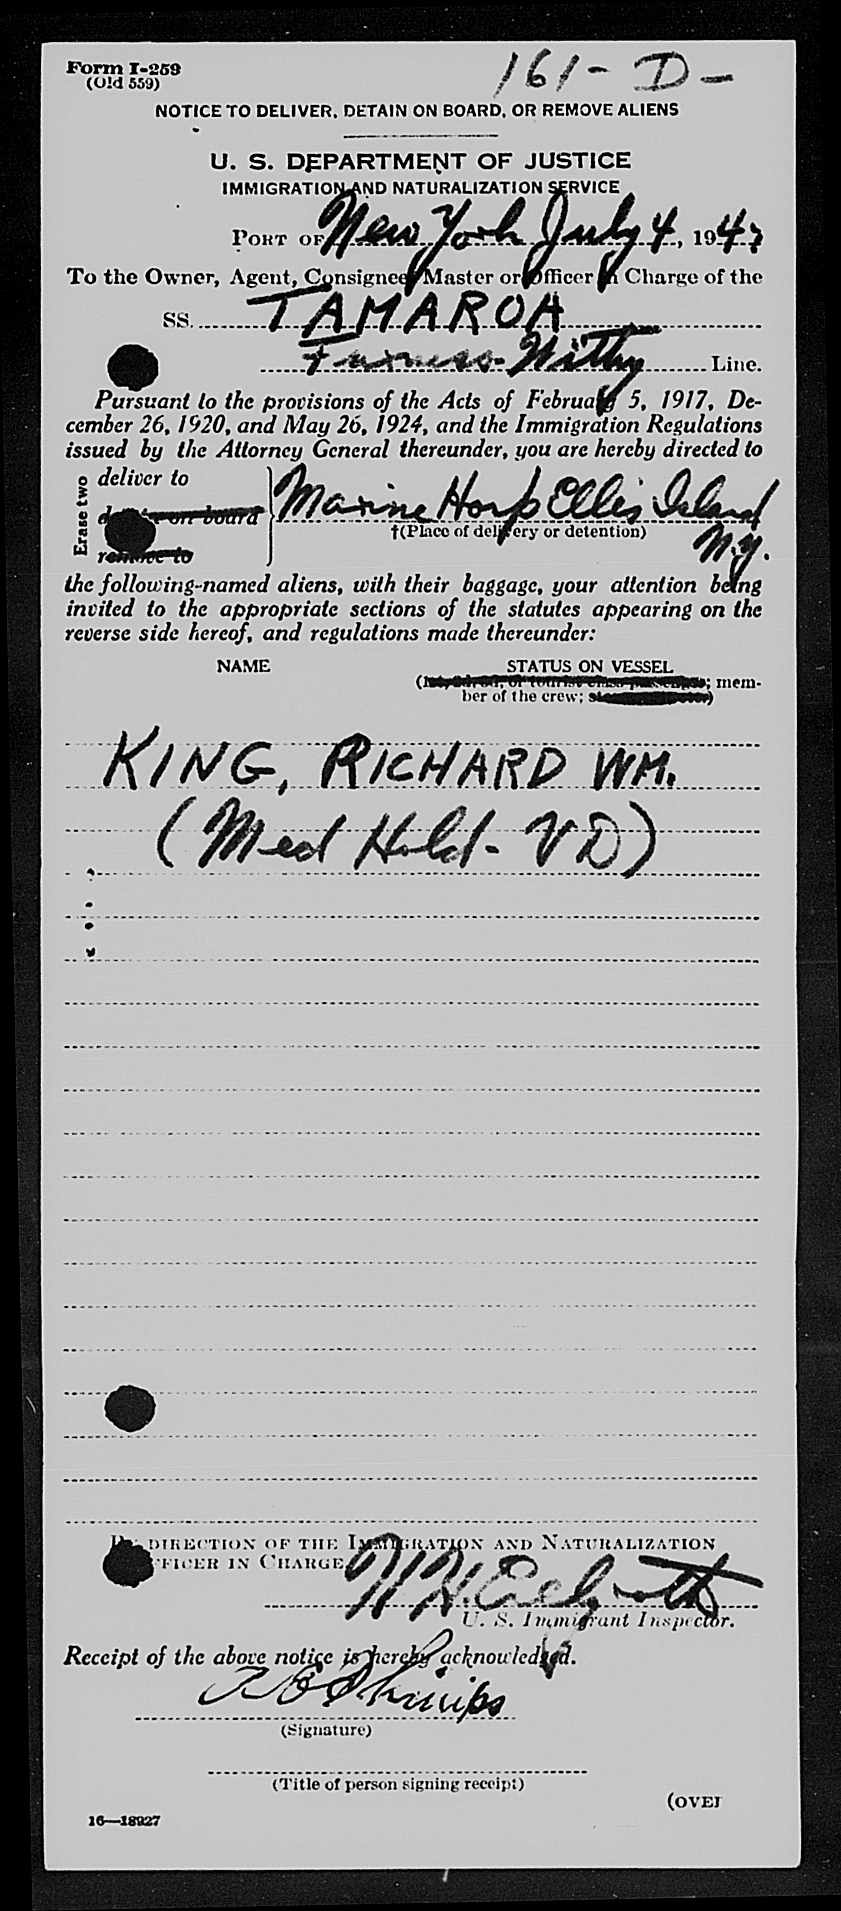 Form I-259
(Old 559)
161 - D -
NOTICE TO DELIVER, DETAIN ON BOARD, OR REMOVE ALIENS
U. S. DEPARTMENT OF JUSTICE
IMMIGRATION AND NATURALIZATION SERVICE
PORT OF New York July 4, 1947
To the Owner, Agent, Consignee, Master or Officer in Charge of the
SS. TAMAROA
Furness-Withy Line.
Pursuant to the provisions of the Acts of February 5, 1917, De-
cember 26, 1920, and May 26, 1924, and the Immigration Regulations
issued by the Attorney General thereunder, you are hereby directed to
Erase two
deliver to
on board
remove to
Marine Hosp Ellis Island
N.Y.
†(Place of delivery or detention)
the following-named aliens, with their baggage, your attention being
invited to the appropriate sections of the statutes appearing on the
reverse side hereof, and regulations made thereunder:
NAME STATUS ON VESSEL
or tourist class passenger; mem-
ber of the crew;
KING, RICHARD WM.
(Med Hold - VD)
BY DIRECTION OF THE IMMIGRATION AND NATURALIZATION
OFFICER IN CHARGE.
U. S. Immigrant Inspector.
Receipt of the above notice is hereby acknowledged.
(Signature)
(Title of person signing receipt)
(OVER
16—18927